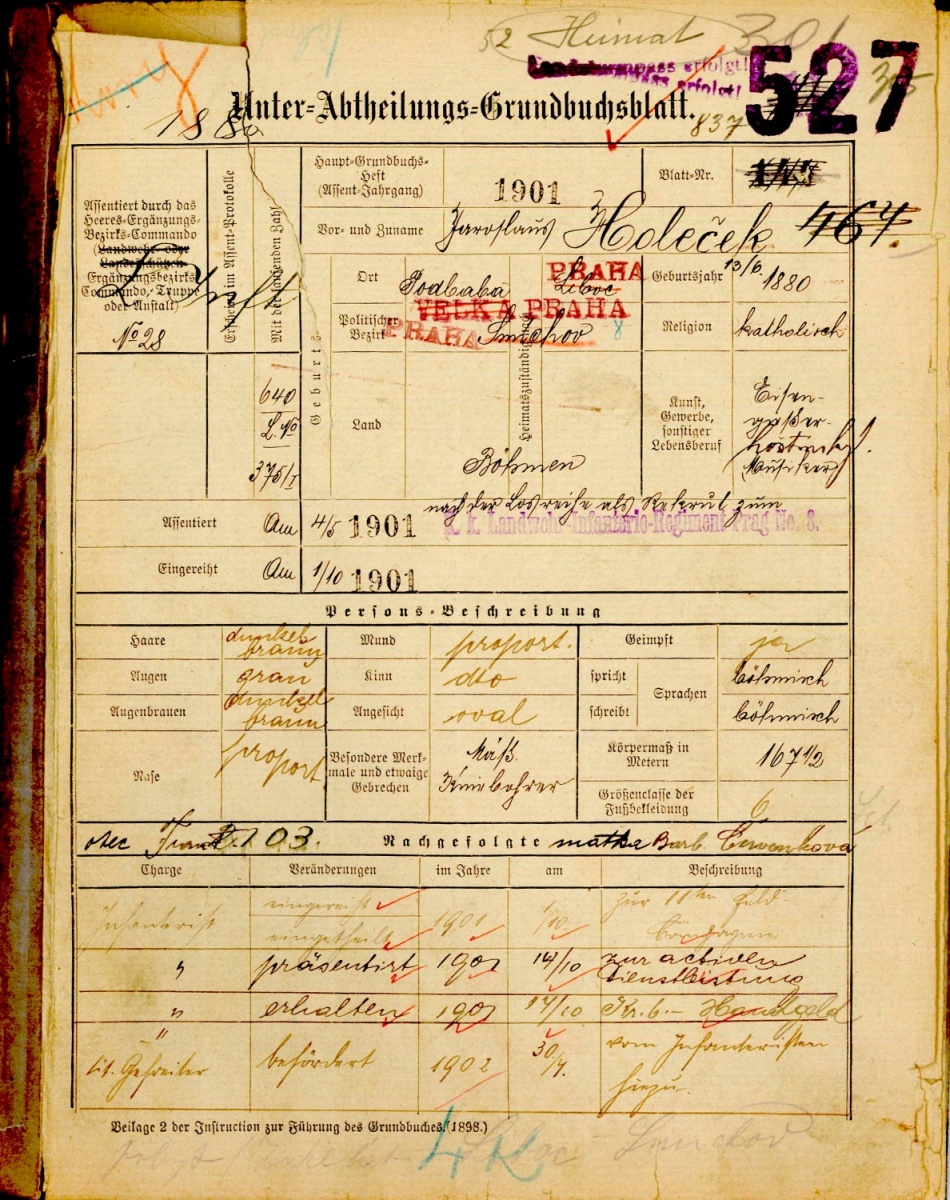 52 Heimat 301
erfolgt!
erfolgt!
527
Unter-Abtheilungs-Grundbuchsblatt.
1880
837
Assentiert durch das
Heeres-Ergänzungs-
Bezirks-Commando
(Landwehr- oder
Landesschützen-
Ergänzungsbezirks-
Commando, Truppe
oder Anstalt)
No 28
Erscheint im Assent-Protokolle
Mit der laufenden Zahl
640
L. No
375/I
Haupt-Grundbuchs-
Heft
(Assent-Jahrgang)
1901
Blatt-Nr.
Vor- und Zuname
Jaroslaus Holeček
467.
Geburts
Ort
Podbaba
Heimatszuständigkeit
PRAHA
Liboc
Geburtsjahr
13/6. 1880
VELKÁ PRAHA
Politischer
Bezirk
PRAHA
Smichov
8
Religion
katholisch
Land
Böhmen
Kunst,
Gewerbe,
sonstiger
Lebensberuf
Eisen-
gießer
Musiker
Assentiert
Am 4/5 1901
nach der Losreihe als Rekrut zum
k. k. Landwehr-Infanterie-Regiment Prag No. 8.
Eingereiht
Am 1/10 1901
Persons-Beschreibung
Haare
dunkel
braun
Mund
proport.
Geimpft
ja
Augen
grau
Kinn
dto
spricht
Sprachen
böhmisch
Augenbrauen
dunkel
braun
Angesicht
oval
schreibt
böhmisch
Nase
proport
Besondere Merk-
male und etwaige
Gebrechen
Mäß.
Kniebohrer
Körpermaß in
Metern
167 1/2
Größenclasse der
Fußbekleidung
6
otec
103.
Nachgefolgte
matka Barb. Červenková
Charge
Veränderungen
im Jahre
am
Beschreibung
Infanterist
eingereiht
eingetheilt
1901
1/10.
zur 11ten Feld-
Compagnie
"
präsentirt
1901
14/10
zur activen
Dienstleistung
"
erhalten
1901
14/10
Kr. 6.- Handgeld
"
tit. Gefreiter
befördert
1902
30/7.
vom Infanteristen
hiezu.
Beilage 2 der Instruction zur Führung des Grundbuches. (1898.)
Smichov